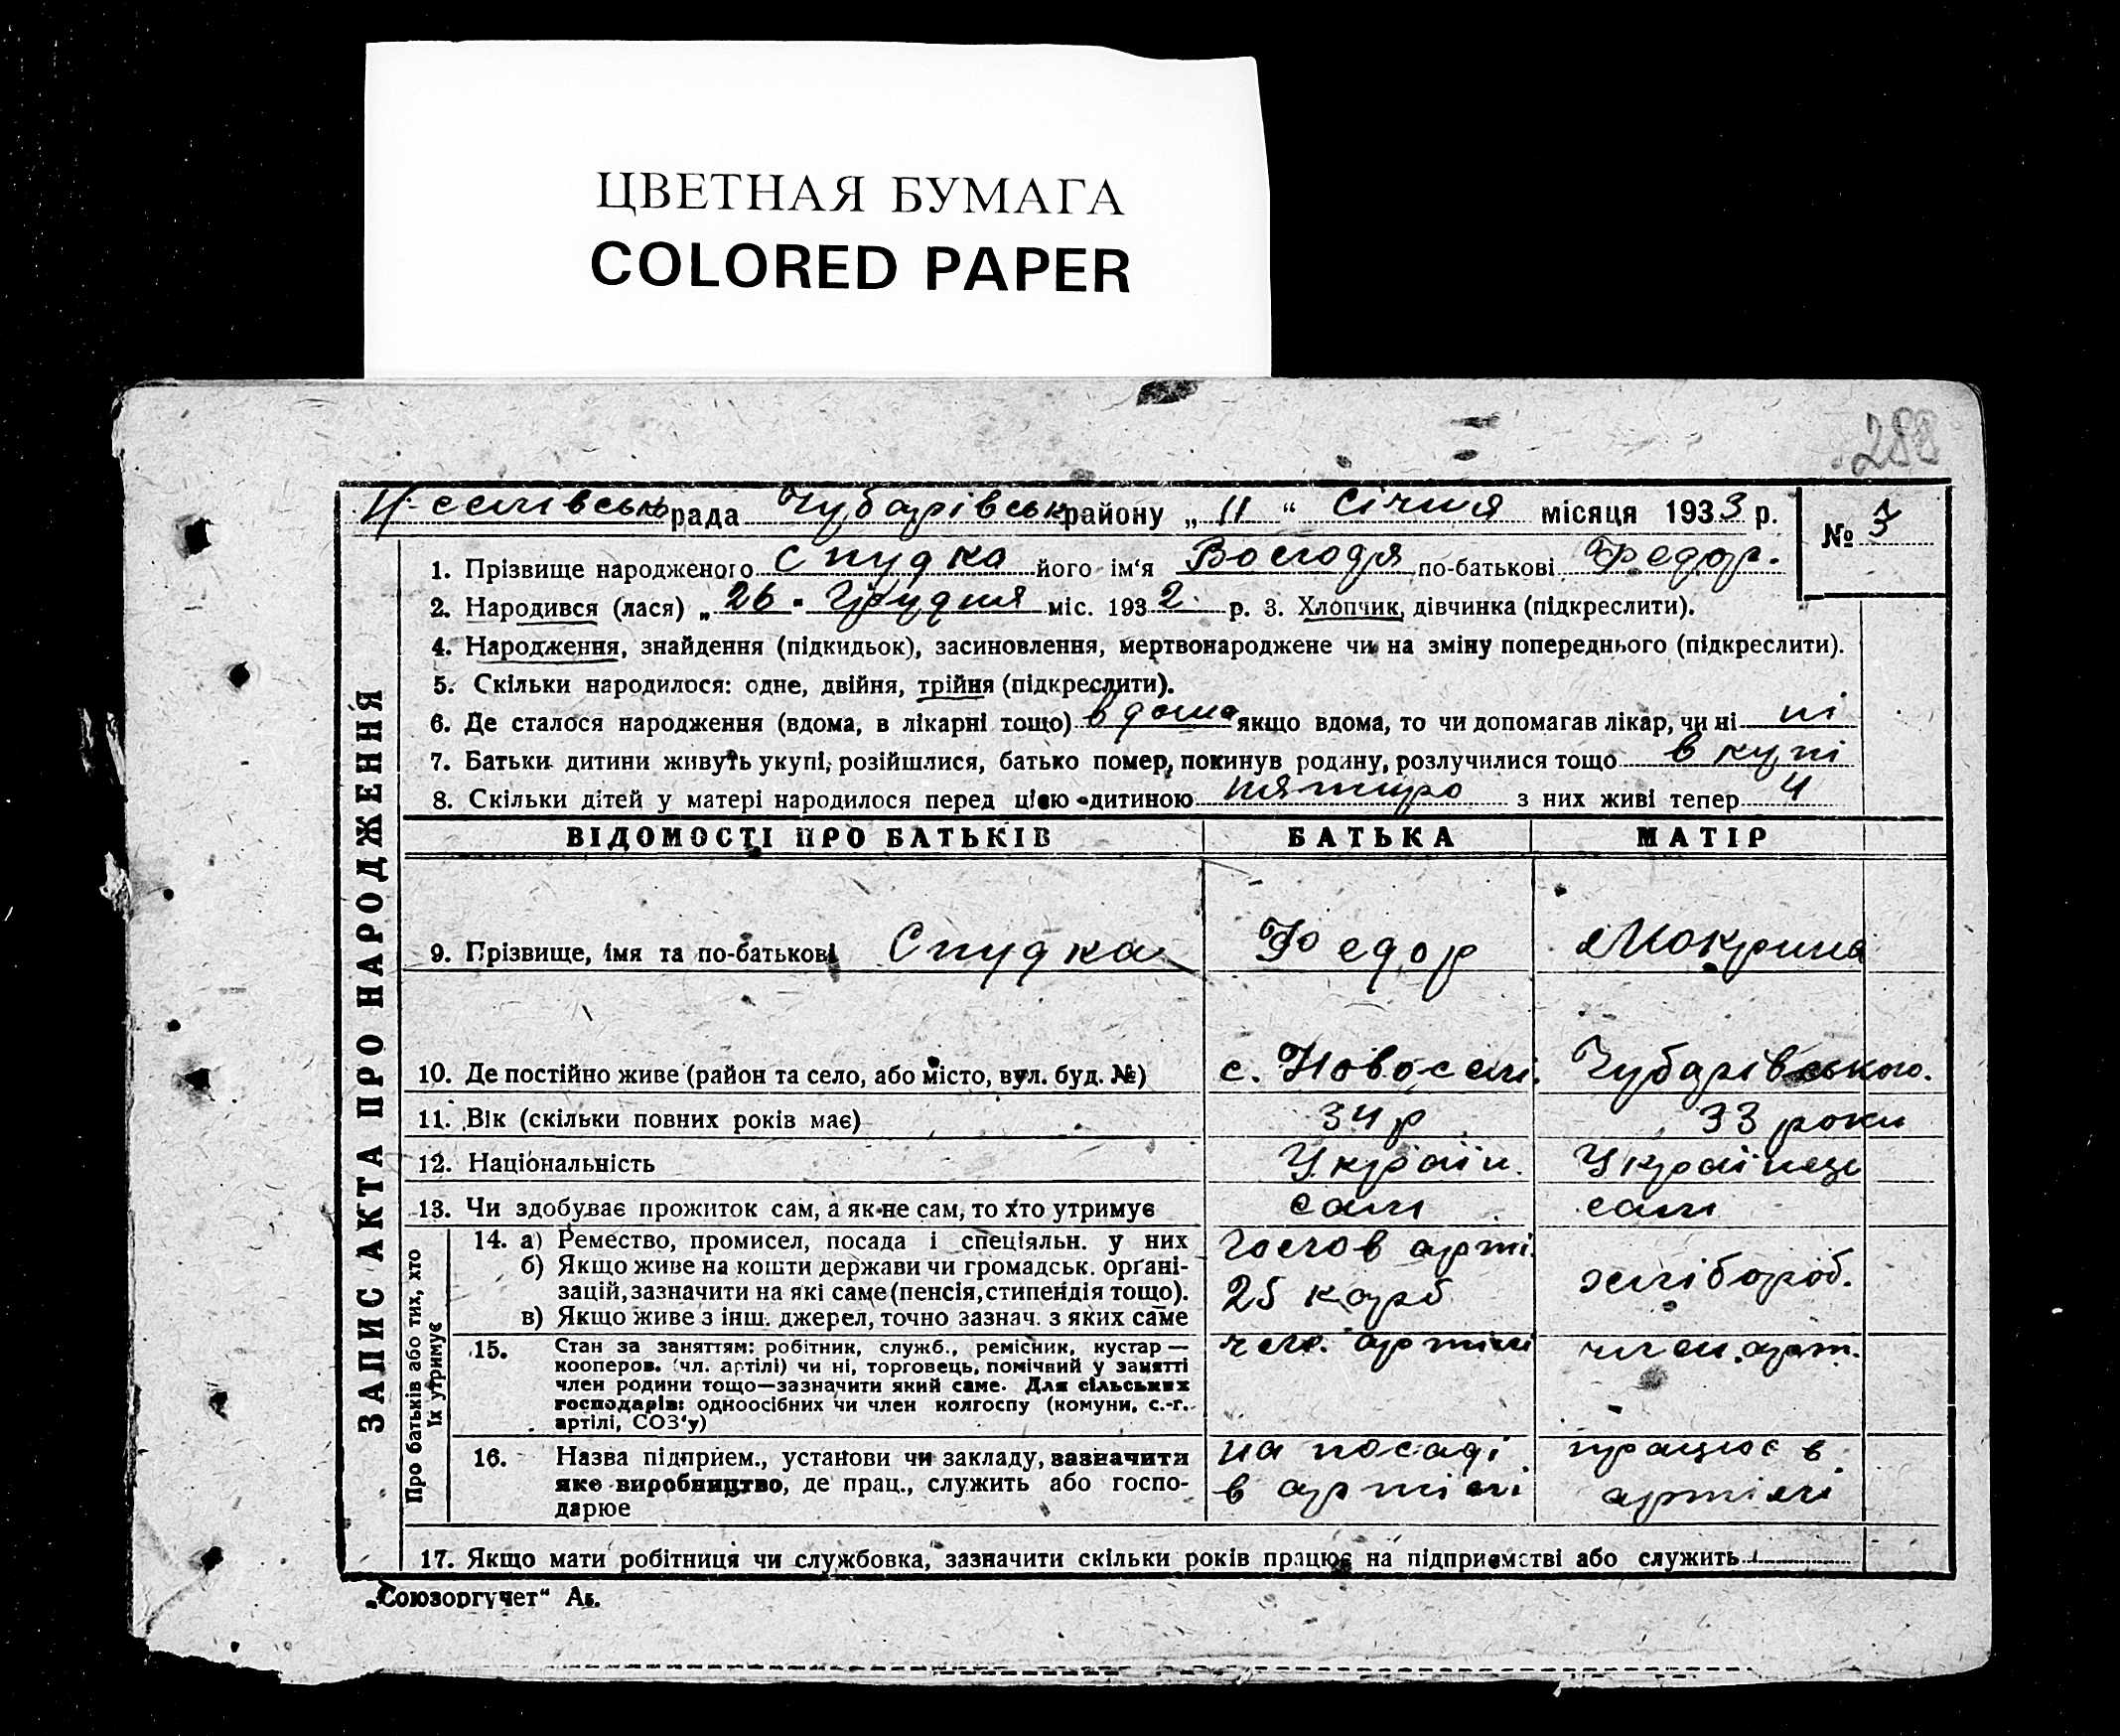 ЦВЕТНАЯ БУМАГА
COLORED PAPER
288
Н-селівська рада Чубарівськ району „ 11 “ Січня місяця 1933 р.
№ 3
1. Прізвище народженого Спудка його ім'я Володя по-батькові Федор.
2. Народився (лася) „ 26 " Грудня міс. 1932 р. 3. Хлопчик, дівчинка (підкреслити).
4. Народження, знайдення (підкидьок), засиновлення, мертвонароджене чи на зміну попереднього (підкреслити).
5. Скільки народилося: одне, двійня, трійня (підкреслити).
6. Де сталося народження (вдома, в лікарні тощо) вдома якщо вдома, то чи допомагав лікар, чи ні ні
7. Батьки дитини живуть укупі, розійшлися, батько помер, покинув родину, розлучилися тощо в купі
8. Скільки дітей у матері народилося перед цією дитиною пятиро з них живі тепер 4
ЗАПИС АКТА ПРО НАРОДЖЕННЯ
ВІДОМОСТІ ПРО БАТЬКІВ БАТЬКА МАТІР
9. Прізвище, імя та по-батькові Спудка Федор Мокрина
10. Де постійно живе (район та село, або місто, вул. буд. №) с. Новосели. Чубарівського.
11. Вік (скільки повних років має) 34 р 33 роки
12. Національність Україн. Українець
13. Чи здобуває прожиток сам, а як не сам, то хто утримує сам сам
Про батьків або тих, хто їх утримує
14. а) Ремество, промисел, посада і спеціяльн. у них голов арті.
б) Якщо живе на кошти держави чи громадськ. органі-
зацій, зазначити на які саме (пенсія, стипендія тощо). 25 карб хлібороб.
в) Якщо живе з інш. джерел, точно зазнач. з яких саме
15. Стан за заняттям: робітник, служб., ремісник, кустар — чле. артілі член. арт.
кооперов. (чл. артілі) чи ні, торговець, помічний у занятті
член родини тощо—зазначити який саме. Для сільських
господарів: одноосібних чи член колгоспу (комуни, с.-г.
артілі, СОЗ'у)
16. Назва підприєм., установи чи закладу, зазначити на посаді працює в
яке виробництво, де прац., служить або госпо- в артілі артілі
дарює
17. Якщо мати робітниця чи службовка, зазначити скільки років працює на підприємстві або служить
„Союзоргучет“